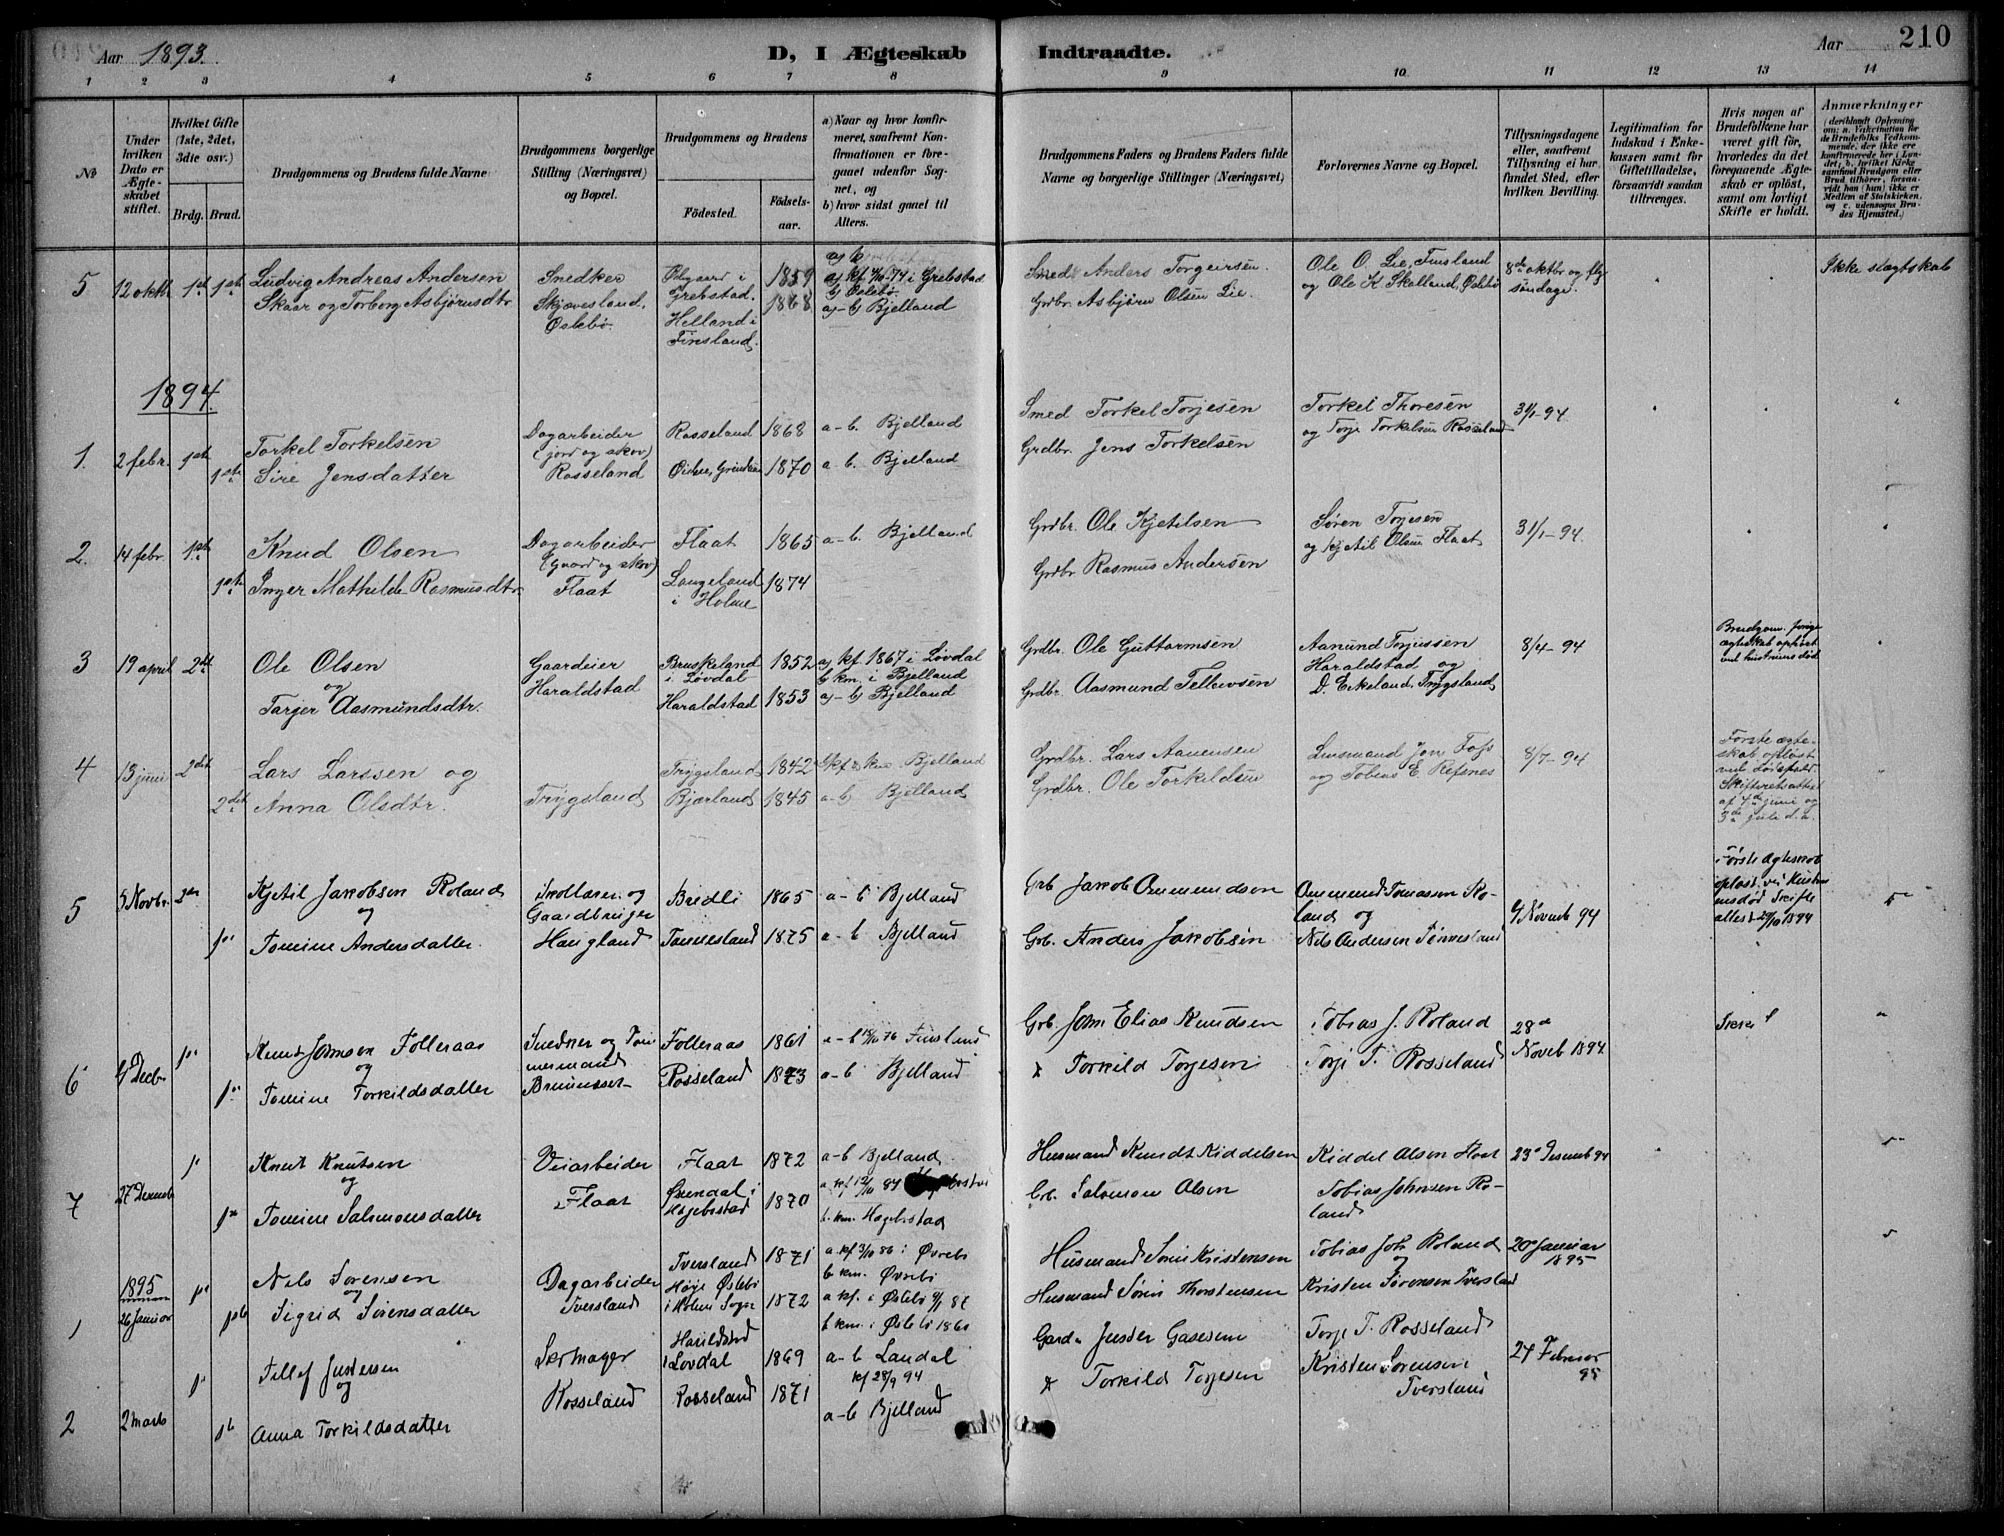 Aar 1893.
D, I Ægteskab Indtraadte.
Aar
210
1 2 3 4 5 6 7 8 9 10. 11 12 13 14
No
Under hvilken Dato er Ægteskabet stiftet.
Hvilket Gifte (1ste, 2det, 3die osv.)
Brdg. Brud.
Brudgommens og Brudens fulde Navne
Brudgommens borgerlige Stilling (Næringsvei) og Bopæl.
Brudgommens og Brudens
Födested.
Födselsaar.
a) Naar og hvor konfirmeret, saafremt Konfirmationen er foregaaet udenfor Sognet, og
b) hvor sidst gaaet til Alters.
Brudgommens Faders og Brudens Faders fulde Navne og borgerlige Stillinger (Næringsvei)
Forlovernes Navne og Bopæl.
Tillysningsdagene eller, saafremt Tillysning ei har fundet Sted, efter hvilken Bevilling.
Legitimation for Indskud i Enkekassen samt for Giftetilladelse, forsaavidt saadan tiltrænges.
Hvis nogen af Brudefolkene har været gift för, hvorledes da det foregaaende Ægteskab er oplöst, samt om lovligt Skifte er holdt.
Anmærkninger
(deriblandt Oplysning om: a. Vakcination for de Brudefolks Vedkommende, der ikke ere konfirmerede her i Landet; b. hvilket Kirkesamfund Brudgom eller Brud tilhörer, forsaavidt han (hun) ikke er Medlem af Statskirken, og c. udensogns Brudes Hjemsted.)
5 12 oktbr 1ste 1ste Ludvig Andreas Andersen
Skaar og Torborg Asbjörnsdtr
Snedker
Skjævesland,
Øslebø.
i
Grebstad.
Helland i
Finsland.
1859
1868
a) kf. 74 i Grebstad
b) Øslebø
a-b Bjelland
Smed Anders Torgeirsen.
Grdbr. Asbjörn Olsen Lie.
Ole O. Lie, Finsland
og Ole K. Skalland, Øslebø
8de oktbr og flg
söndage.
Ikke slægtskab
1894.
1. 2 febr. 1ste Torkel Torkelsen
1ste Sire Jensdatter
Dagarbeider
(jord og skov)
Rosseland
Rosseland 1868 a-b. Bjelland
1870 a-b. Bjelland
Smed Torkel Torjesen
Grdbr. Jens Torkelsen
Torkel Thoresen
og Torje Torkelsen Rosseland
31/1-94.
2. 14 febr. 1ste Knud Olsen
1ste Inger Mathilde Rasmusdtr.
Dagarbeider
(gaard og skov)
Flaat
Flaat 1865 a-b. Bjelland
Langeland
i Holme 1874
Grdbr. Ole Kjetilsen
Grdbr. Rasmus Andersen
Søren Torjesen
og Kjetil Olsen Flaat
31/1-94.
3 19 april 2det Ole Olsen
og
Targer Aasmundsdtr.
Gaardeier
Haraldstad
Bruskeland
i Løvdal
Haraldstad
1852
1853
a) kf 1867 i Løvdal
b) km. i Bjelland
a-b Bjelland
Grdbr. Ole Guttormsen
Grdbr. Aasmund Tellevsen
Aanund Torjussen
Haraldstad og
D. Eikeland, Trygsland
8/4-94
Brudgom. forrige
ægteskab ophørt
ved hustruens død
4 13 juni 2det Lars Larssen og
2det Anna Olsdtr.
Trygsland
Trygsland 1842 Bjelland
Bjærland 1845 a-b Bjelland
Grdbr. Lars Aanensen
Grdbr. Ole Torkildsen
Lensmand Jon Foss
og Tobias E. Refsnes
8/7-94
Første ægteskab opløst
ved dødsfald.
Skifteretsattest
af 4de juni og
3de jule d. a.
5 5 Novbr. 2den Kjetil Jakobsen Roland
og
Tomine Andersdatter.
Skollærer og
Gaardbruger
Haugland
Bredli 1865 a-b Bjelland
Tonnesland 1875 a-b Bjelland
Grb Jakob Ommundsen
Grb. Anders Jakobsen
Ommund Tomassen Roland og
Nils Andersen Tønnesland
4 Novemb 94
Første Ægteskab
opløst ved Kustruens død Skifte
attest 29/10 1894
6 9 Decbr Knut Johnsen Folleraas
og
Tomine Torkildsdatter
Snedker og Tømmermand
Folleraas 1861 a-b 76 Finsland
Rosseland 1873 a-b Bjelland
Grb. John Elias Knudsen
Torkild Torjesen
Tobias J. Roland
Torje T. Rosseland
28de
Noveb 1894
7 27 Decemb Knut Knutsen
og
Tomine Salomonsdatter
Veiarbeider
Flaat
Flaat 1872 a-b Bjelland
i
Hægebostad 1870
b. km. Hægebostad
Husmand Knudt Kiddelsen
Grb. Salomon Olsen
Kiddel Olsen Flaat
Tobias Johnsen Roland
23de Desemb 94
1895
1 26 Januar Nils Sørensen
og
Sigrid Sørensdatter
Dagarbeider
Tversland
Tversland 1871 a-kf 86 i Øvrebø
b km. Øvrebø
Høje Øslebø
i Holme Sogn 1872 a kf. i Øslebø 87
b km. i Øslebø
Husmand Sørin Kristensen
Husmand Sørin Thorstensen
Tobias Joh Roland
og
Kristen Sørensen Tversland
20de Januar
1895
2 2 marts Tellef Justersen
og
Anna Torkildsdatter
Rosseland
i Løvdal 1869 a-b Laudal
kf 28/9 94
Rosseland 1871 a-b Bjelland
Torkild Torjesen
Torje T. Rosseland
Kristen Sørensen
Tversland
24 Februar
95